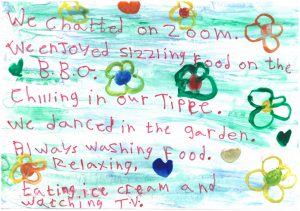 We Chatted on Zoom.
We enjoyed sizzling food on the
B.B.Q.
Chilling in our Tippe.
We danced in the garden.
Always washing food.
Relaxing,
Eating ice cream and
watching T.V.